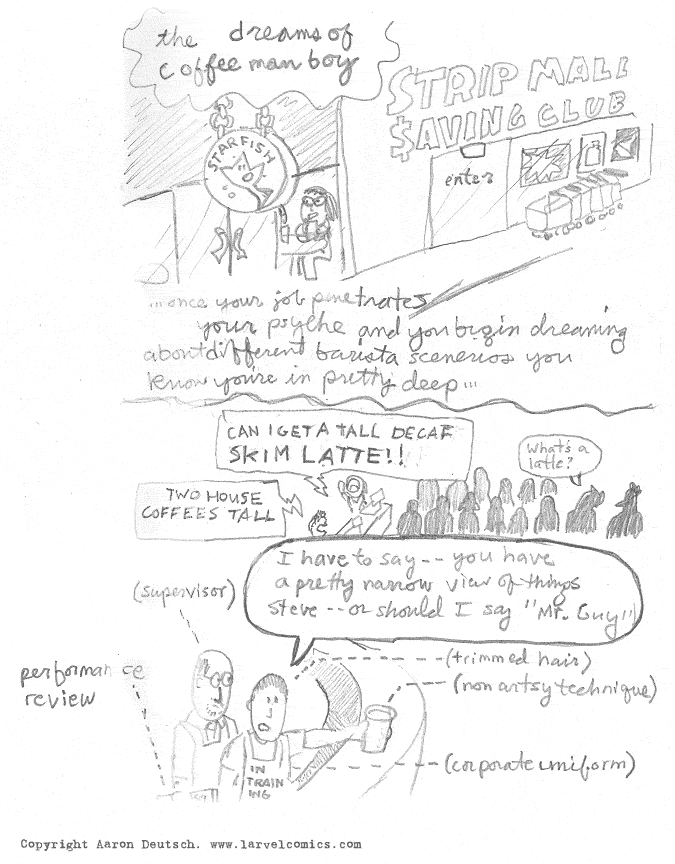 the dreams of
coffee man boy
STRIP MALL
$AVING CLUB
STARFISH
enter
...once your job penetrates
your psyche and you begin dreaming
about different barista scenerios you
know you're in pretty deep...
CAN I GET A TALL DECAF
SKIM LATTE!!
What's a
latte?
TWO HOUSE
COFFEES TALL
I have to say -- you have
a pretty narrow view of things
Steve -- or should I say "Mr. Guy"
(supervisor)
(trimmed hair)
performance
review
(non artsy technique)
(corporate uniform)
IN
TRAIN
ING
Copyright Aaron Deutsch. www.larvelcomics.com